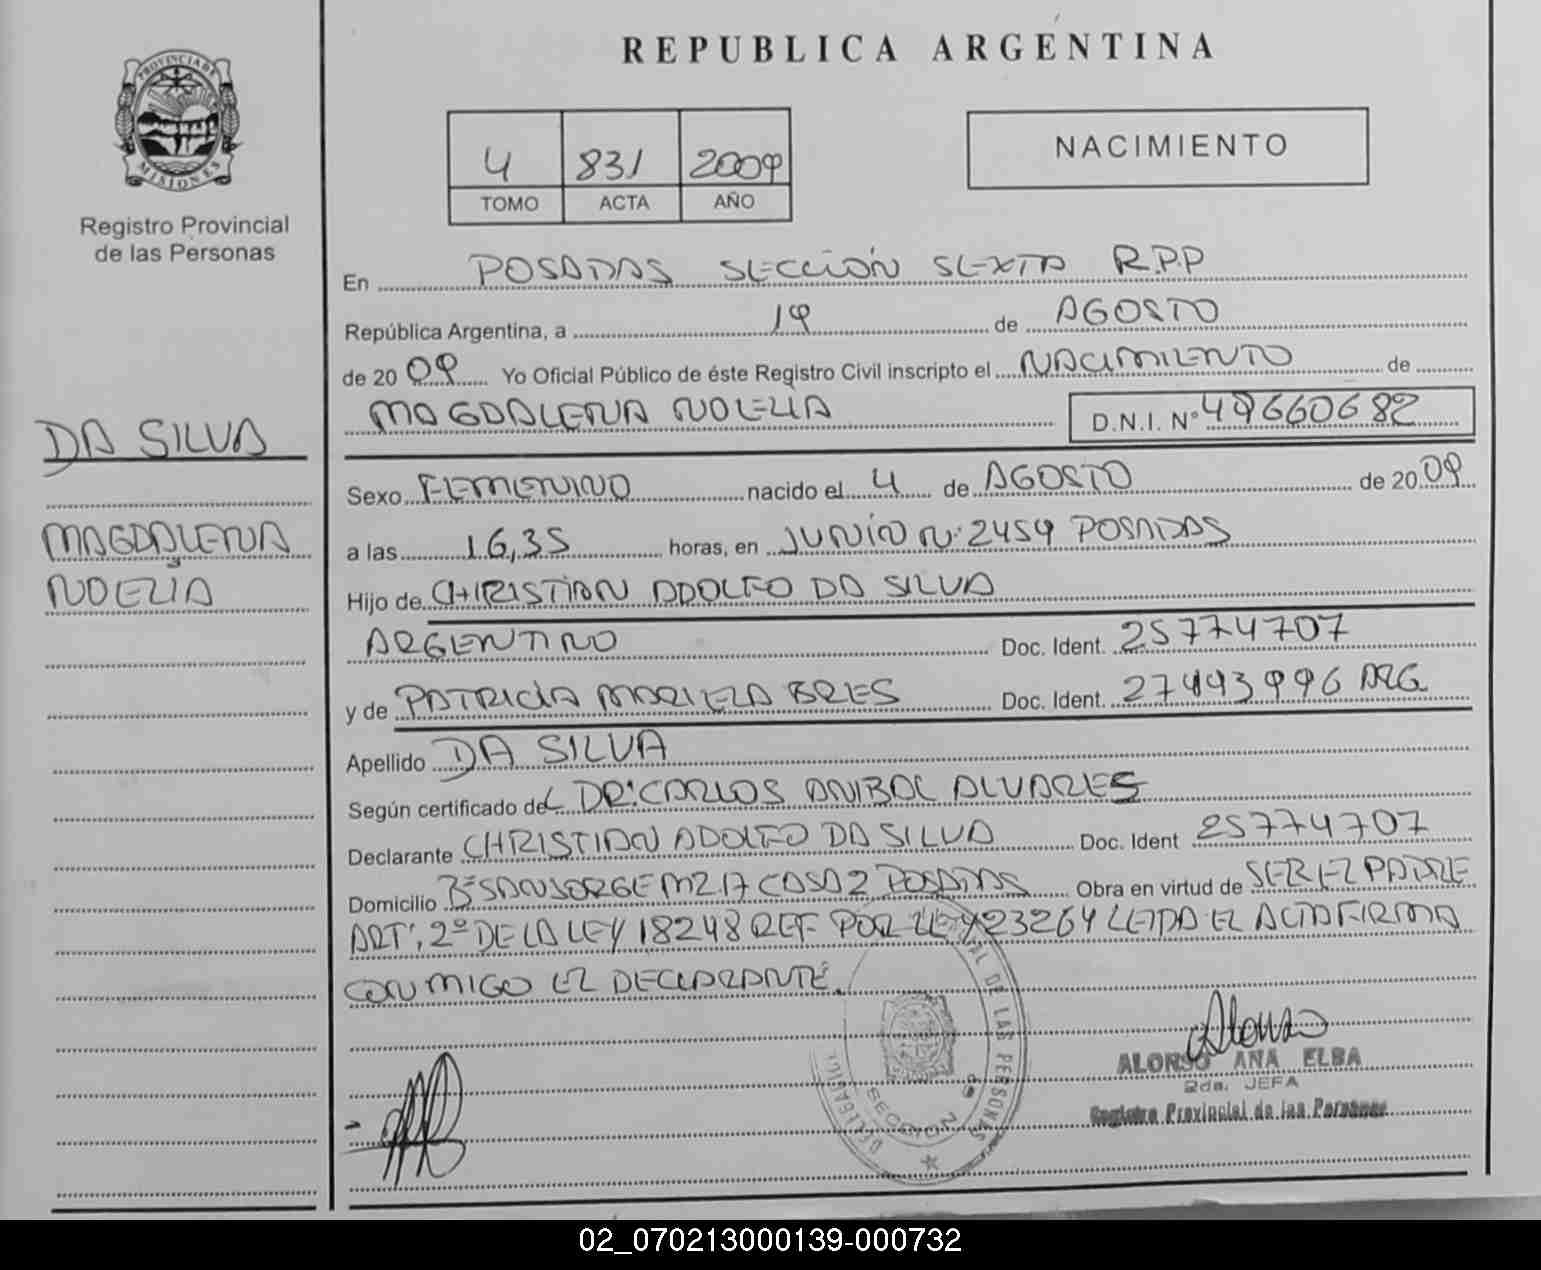 REPUBLICA ARGENTINA
PROVINCIA DE
MISIONES
Registro Provincial
de las Personas
4 831 2009
TOMO ACTA AÑO
NACIMIENTO
En POSADAS SECCIÓN SEXTA R.P.P
República Argentina, a 19 de AGOSTO
de 2009 Yo Oficial Público de éste Registro Civil inscripto el NACIMIENTO de
MAGDALENA NOELIA D.N.I. Nº 49660682
DA SILVA
MAGDALENA
NOELIA
Sexo FEMENINO nacido el 4 de AGOSTO de 2009
a las 16,35 horas, en JUNÍN N: 2454 POSADAS
Hijo de CHRISTIAN ADOLFO DA SILVA
ARGENTINO Doc. Ident. 25774707
y de PATRICIA MARIELA BRES Doc. Ident. 27443996 ARG
Apellido DA SILVA
Según certificado del DR: CARLOS ANIBAL ALVARES
Declarante CHRISTIAN ADOLFO DA SILVA Doc. Ident 25774707
Domicilio Bº SAN JORGE MZ 17 CASA 2 POSADAS Obra en virtud de SER EL PADRE
ART: 2º DE LA LEY 18248 REF POR LEY 23264 LEIDA EL ACTA FIRMA
CONMIGO EL DECLARANTE.
Alonso
ALONSO ANA ELBA
2da. JEFA
Registro Provincial de las Personas
DE LAS PERSONAS
DELEGACION
SECCION 6ª
02_070213000139-000732